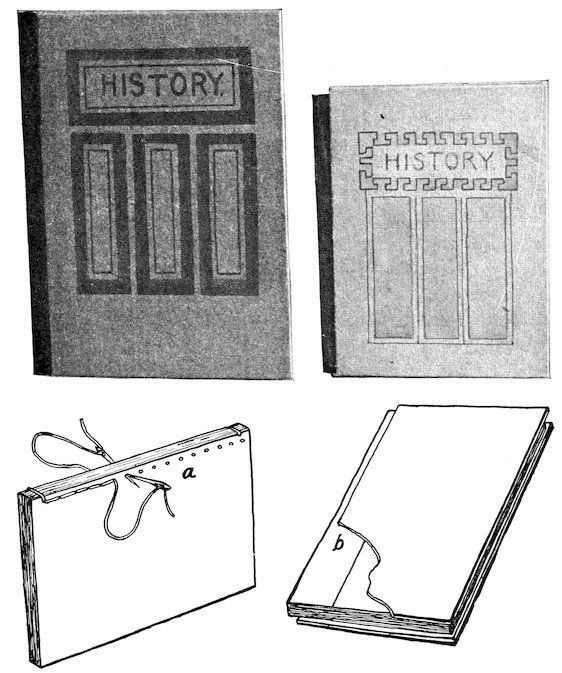 HISTORY.
HISTORY
a
b